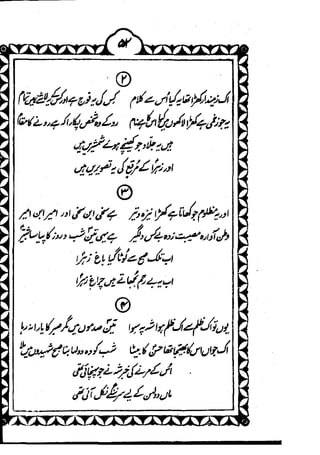 ۵۲
۲
اک زمیندار کھڑا تھا یہ کیا اُس سے کلام کس کی یہ فوج ہے اور کس کے لاشے ہیں تمام
یہ جو زخمی ہے کھڑا لاکھوں میں کیا اس کا ہے نام رو کے وہ شخص پکارا کہ ہے رونے کا مقام
ہیں یہ جلاد جو کھینچے ہوئے شمشیریں ہیں
اور زہراؑ کے مرقع کی یہ تصویریں ہیں
۳
اور یہ مظلوم جو کھاتا ہے کھڑا نیزہ و تیر ہے سخی ابن سخی اور امیر ابن امیر
وطن آوارہ مصیبت زدہ بیکس دلگیر ہے یہی تین شب و روز کا پیاسا شبیرؑ
اب تلک صبح سے لوٹا گیا باغ زہراؑ
اب یہ بے رحم بجھاتے ہیں چراغ زہراؑ
۴
یوں تو اک ظلم سے اک ظلم ہوا شہ پہ سوا تین صدموں میں مگر صبر کا یارا نہ رہا
اک جواں اس کا بھتیجا تھا حسنؑ کا بیٹا شب کو دولھا بنا صبح شہیدوں میں ملا
اُس کے مرنے کی خبر شہ نے جو پہنچائی تھی
ماں دولھن کے لیے سر ننگے نکل آئی تھی